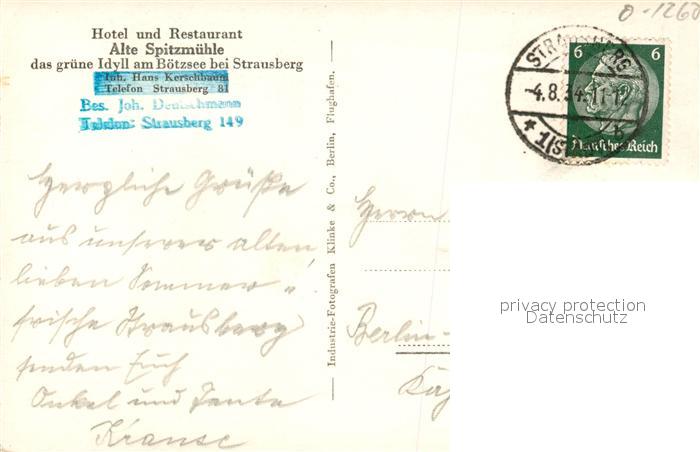 O-1260
Hotel und Restaurant
Alte Spitzmühle
das grüne Idyll am Bötzsee bei Strausberg
Inh. Hans Kerschbaum
Telefon Strausberg 81
Bes. Joh. Deutschmann
Telefon: Strausberg 149
Herzliche Grüße
aus unserer alten
lieben Sommer-
frische Strausberg
senden Euch
Onkel und Tante
Krause
Industrie-Fotografen Klinke & Co., Berlin, Flughafen.
STRAUSBERG
-4.8.34.11-12
b
6 6
Deutsches Reich
Herrn
Berlin-
privacy protection
Datenschutz